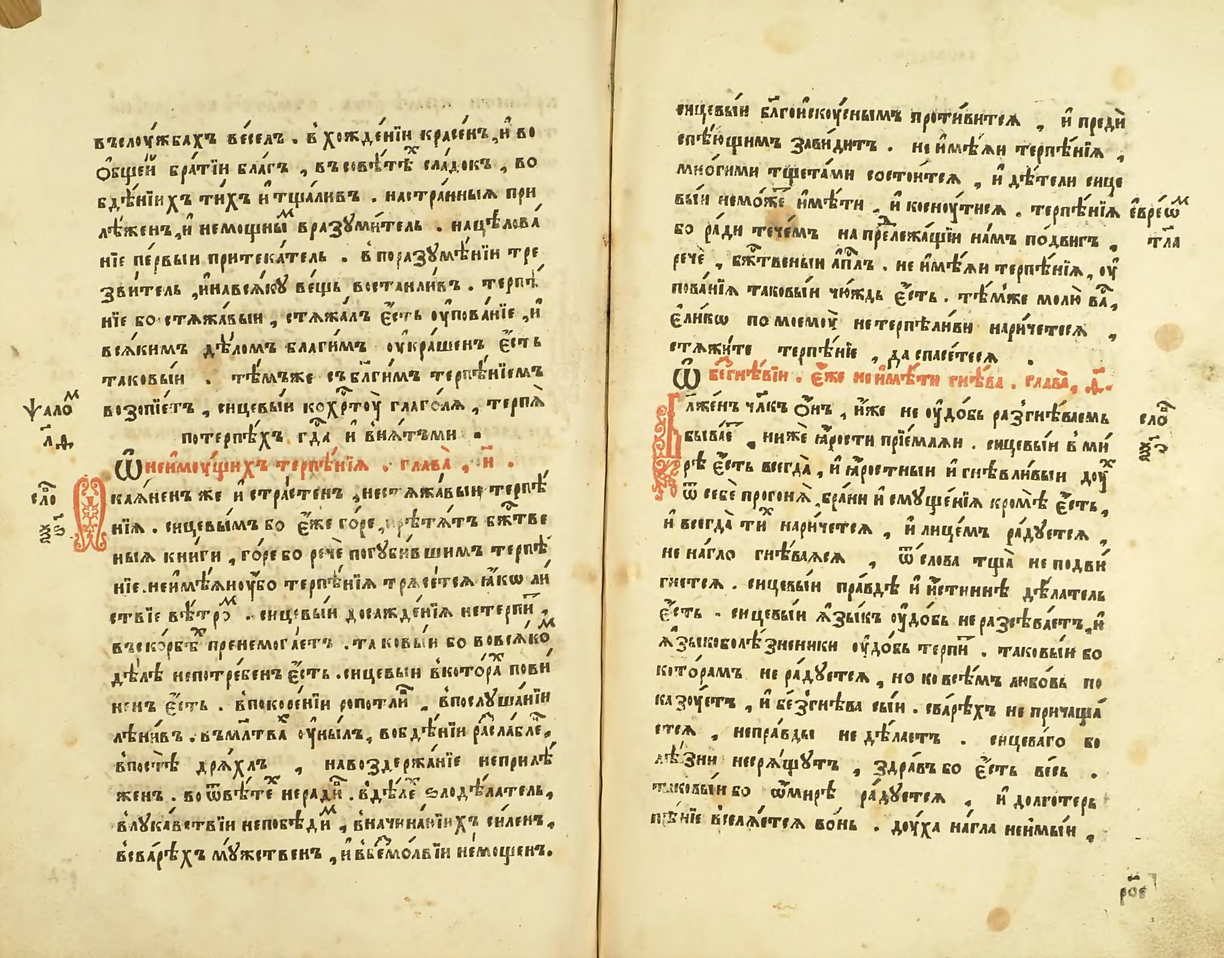 въслꙋжбахъ ве́селъ. в̾хожде́нїи красе́нъ, и҆ во
о҆́бщей бра́тїи бла́гъ, въсовѣ́тѣⷯ сла́докъ, во
бдѣ́нїихъ ти́хъ и҆ тщали́въ. настра́нныѧ при
лѣ́женъ, и҆ немощны́ⷨ вразꙋми́тель. нацѣлова́
нїе пе́рвыи притека́тель. в̾поразꙋмѣ́нїи тре
зви́тель, и҆навсѧ́кꙋ ве́щь востанли́въ. терпѣ́
нїе бо стѧжа́выи, стѧжа́лъ є҆́сть оу҆пова́нїе, и҆
всѧ́кимъ дѣ́ломъ благи́мъ оу҆кра́шенъ є҆́сть
таковы́и. тѣ́мъже съ бл҃ги́мъ терпѣ́нїемъ
возопїе́тъ, сицевы́и кохрⷭ҇тоу̀ глаго́лѧ, терпѧ̀
потерпѣ́хъ гдⷭ҇а и҆ внѧ́тъми.
ѱало́ⷨ
л҃д.
Ѿ неимоу́щихъ терпѣ́нїѧ. глава̀, и҃.
сло́
Ѻ҆каѧ́ненъ же и҆ стра́стенъ, нестѧжа́выи терпѣ́
нїѧ. сицевы́мъ бо є҆́же го́ре, прѣтѧ́тъ бжⷭ҇тве
ныѧ кни́ги, го́ре бо речѐ погꙋби́вшимъ терпѣ́
нїе. неимѣ́ѧиоу҆бо терпѣ́нїѧ трѧсе́тсѧ ꙗ҆́кѡ ли́
ствїе вѣ́троⷨ. сицевы́и досажде́нїѧ нетерпи́ⷮ,
въскорбеⷯ пренемога́етъ. таковы́и бо вовсѧ́коⷨ
дѣ́лѣ непотре́бенъ є҆́сть. сицевы́и вкотора́ⷯ пови́
ненъ є҆́сть. впокоре́нїи ропотли́ⷡ, впослꙋша́нїи
лѣни́въ. въмл҃твⷯа оу҆ны́лъ, вобдѣ́нїи разслабле́ⷩ,
впостѣ̀ дрѧ́хлъ, навоздержа́нїе неприлѣ́
женъ. во ѿвѣ́теⷯ неради́ⷡ. вдѣ́леⷯ ѕлодѣ́латель,
влꙋка́вствїи непобѣди́ⷨ, вначина́нїихъ си́ленъ,
всва́рѣхъ мꙋ́жественъ, и҆ вбеⷥмо́лвїи немо́щенъ.
сицевы́и бл҃гоиску́снымъ проти́витсѧ, и҆ предꙋ
спѣ́ющимъ зави́дитъ. не и҆мѣ́ѧи терпѣ́нїѧ,
мно́гими тщета́ми состои́тсѧ, и҆ дѣ́тели сице
вы́и немо́жеⷮ и҆мѣ́ти, и҆ косноу́тисѧ. терпѣ́нїѧ
є҆вре́ѡⷨ
тл҃а
бо ра́ди тече́мъ на прⷣележа́щїи на́мъ по́двигъ,
речѐ, бжⷭ҇твеныи а҆пⷭ҇лъ. не и҆мѣ́ѧи терпѣ́нїѧ, оу҆
пова́нїѧ таковы́и чю́ждь є҆́сть. тѣ́мже молю̀ ва́ⷭ,
є҆ли́кѡ по моемоу̀ нетерпѣли́ви нарича́етесѧ,
стѧжи́те терпѣ́нїе, да спасе́тесѧ.
Ѿ безгнѣ́вїи. є҆́же не и҆мѣ́ти гнѣ́ва. глава̀, ѳ҃.
сло́
Блаже́нъ чл҃къ о҆́нъ, и҆́же не оу҆до́бь разгнѣ́ваемь
быва́еⷮ, ни́же ꙗ҆́рости прїе́млѧи. сицевы́и в̾ми́
рѣ є҆́сть всегда̀, и҆ ꙗ҆́ростныи и҆ гнѣвли́выи доу́ⷯ
ѿ себѐ прогонѧ̀, бра́ни и҆ смꙋще́нїѧ кромѣ̀ є҆́сть,
и҆ всегда̀ ти́ⷯ нарича́етсѧ, и҆ лице́мъ ра́дꙋетсѧ,
не на́гло гнѣ́ваѧсѧ, ѿ сло́ва тща̀ не подви́
гнетсѧ. сицевы́и пра́вдѣ и҆ и҆́стиннѣ дѣ́латель
є҆́сть. сицевы́и ѧ҆зы́къ оу҆до́бь не разсѣва́етъ, и҆
ѧ҆зыкоболѣ́зненики оу҆до́бь терпи́ⷮ. таковы́и бо
кото́рамъ не ра́дꙋетсѧ, но ко всѣ́мъ любо́вь по
казоу́етъ, и҆ безгнѣ́ва сы́и. сва́рѣхъ не причаща́
етсѧ, непра́вды не дѣ́лаетъ. сицева́го бо
лѣ́зни несрѧ́щꙋтъ, здра́въ бо є҆́сть ве́сь.
таковы́и бо ѡ҆ми́рѣ ра́дꙋетсѧ, и҆ долготерь
пѣ́нїе вселѧ́етсѧ во́нь. доу́ха на́гла неи́мыи,
рⷪ҇е